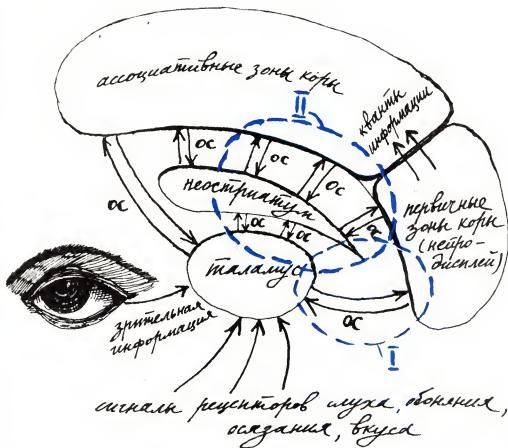 ассоциативные зоны коры
II
кванты
информации
ос
ос
ос
ос
неостриатум
ос
ос
ос
первичные
зоны коры
(нейро-
дисплей)
таламус
ос
зрительная
информация
I
сигналы рецепторов слуха, обоняния,
осязания, вкуса